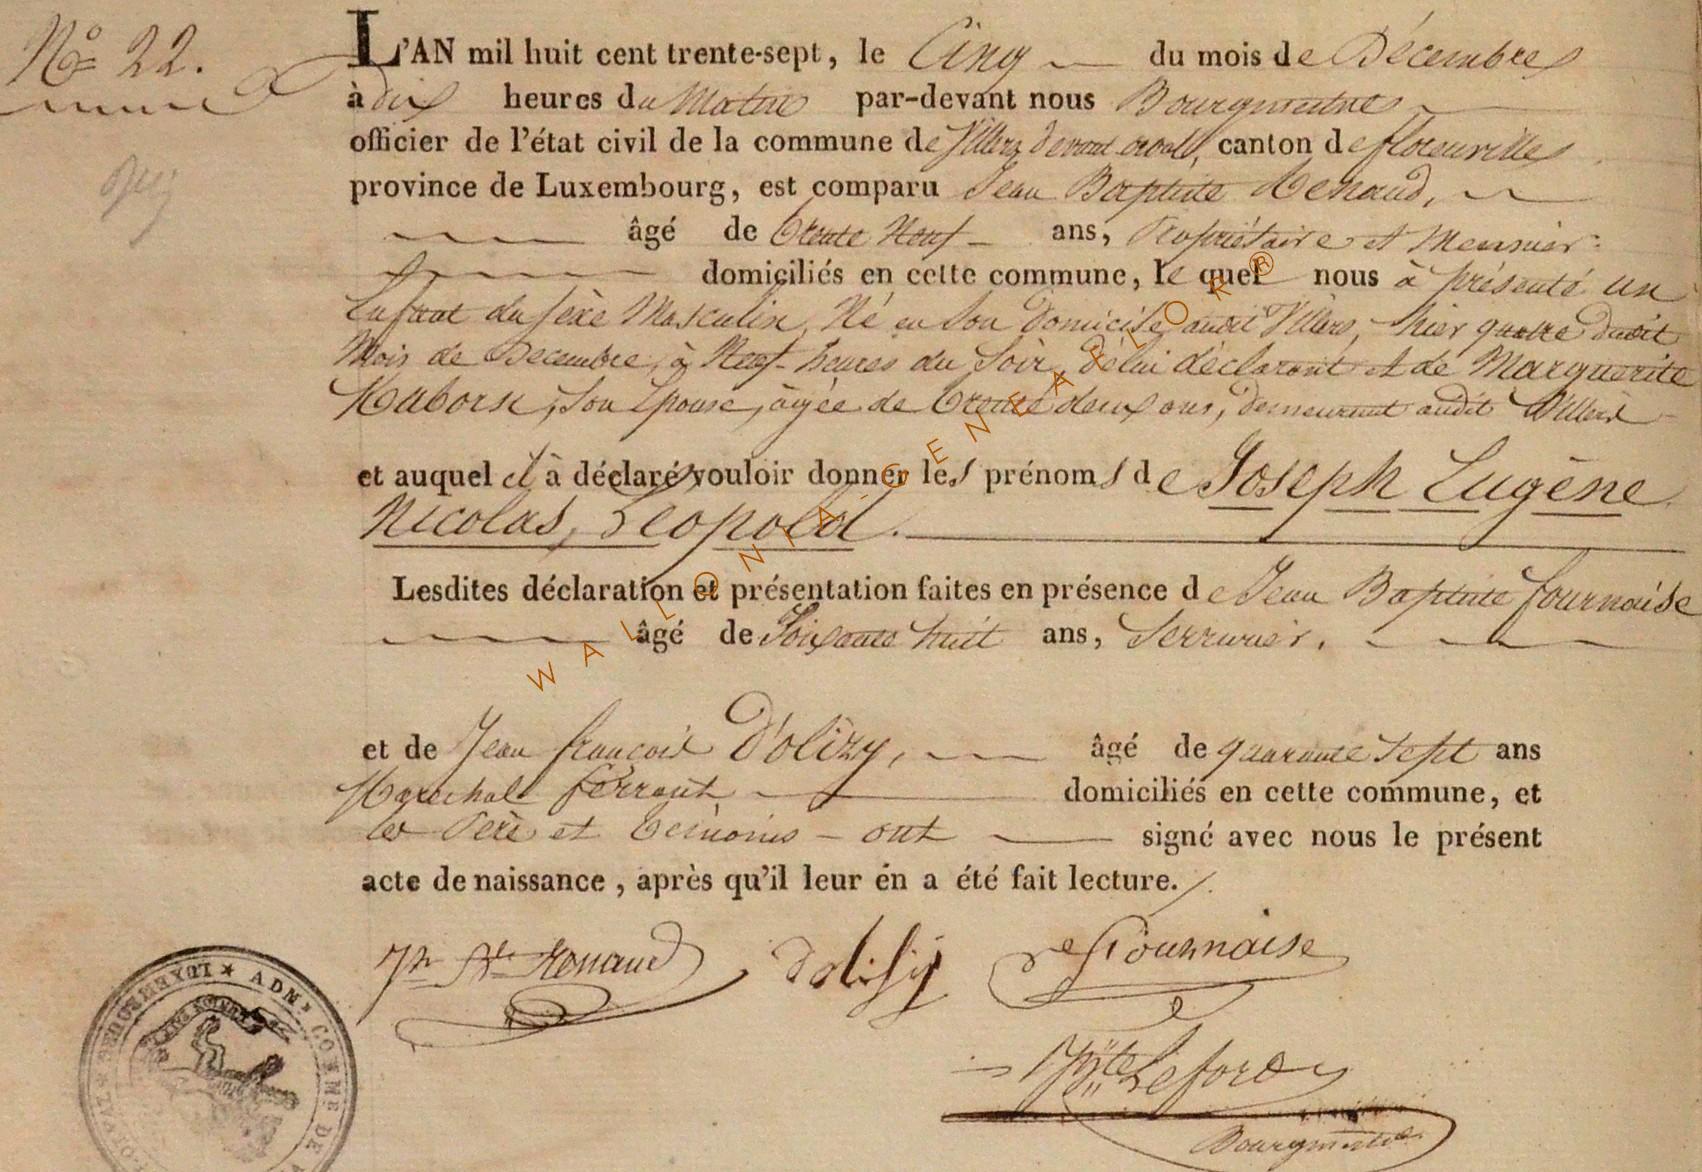 N° 22.
L'AN mil huit cent trente-sept, le Cinq du mois de Décembre
à dix heures du Matin par-devant nous Bourgmestre
officier de l'état civil de la commune de Villers devant orval, canton de florenville
province de Luxembourg, est comparu Jean Baptiste Renaud,
âgé de trente Neuf ans, Propriétaire et Meunier
domiciliés en cette commune, le quel nous à présenté un
Enfant du sèxe Masculin, Né en son domicile audit Villers, hier quatre dudit
Mois de Decembre, à Neuf heures du soir, de lui déclarant et de Marguerite
son Epouse, âgée de trente deux ans, demeurant audit Villers
et auquel il à déclaré vouloir donner les prénoms de Joseph Eugène
Nicolas, Léopold.
Lesdites déclaration et présentation faites en présence de Jean Baptiste fournaise
âgé de Soixante huit ans, Serrurier.
et de Jean françois D'olizy, âgé de quarante sept ans
Marechal ferrant domiciliés en cette commune, et
les Père et témoins ont signé avec nous le présent
acte de naissance, après qu'il leur én a été fait lecture.
Renaud dolisy fournaise
Bourgmestre
LUXEMBOURG ★ ADM COMM DE
WALLONIA-GENEAFLOR®